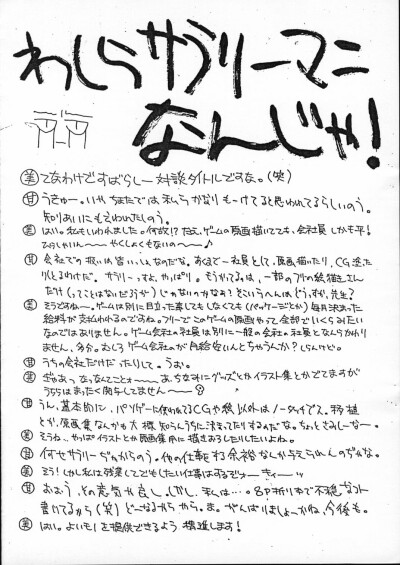 わしらサラリーマン
なんじゃ!
美 てなわけですばらしー対談タイトルですな。(笑)
甘 うきゅー。いや ちまたでは 私ら かなり もーけてると思われてるらしいの。
知りあいにも言われたしのう。
美 はい。私もいわれました。何故!? たて、ゲームの原画描いてても、会社員 しかも平!
やくしょくもないの〜〜♪
甘 会社での 扱いは皆いっしょなのだな。あくまで一社員として、原画描いたり、CG塗ったり
するわけだ。サラリーっすよ、やっぱり。もうかてるは、一部のフリの絵描きさん
だけ (ってことはないだろうが) じゃないのかなあ? そこいらへんはどうっすか、先生?
美 そうですねー。ゲームは別に目立った事してもしなくても (パッケージとか) 毎月決まった
給料が支払われるのですね。フリーでこのゲームの原画やって全部でいくらみたい
なのではありません。ゲーム会社の社員は別に一般の会社の社員となんらかわり
ません、多分。むしろゲーム会社のが月給安いんとちゃうんか? しらんけど。
甘 うちの会社だけだったりして。うお。
美 ぎゃあっ、なっなんてことォ〜〜。あ、ちなみにグッズとかイラスト集とかでてますが
うちらはまったく関与してませーん
甘 うん、基本的に、パソゲーに使われるCGや絵以外はノータッチです。移植
とか、原画集なんかも大概知らんうちに決まってたりするのだな。ちょっとさみしーなー。
美 そうね、やっぱイラストとか原画集用に描きおろしたりしたいよね。
甘 何せサラリーぢゃからのう。他の仕事をする余裕なんか与えられんのぢゃな。
美 そう! しかし私は残業してでもしたい仕事はするぞォーきィーッ
甘 おおう、その意気や良し。しかし、私は…。8P折り本で不穏なコト
書いてるから (笑) どーなるやら。ま、がんばりましょーかね、今後も。
美 はい。よいモノを提供できるよう 精進します!